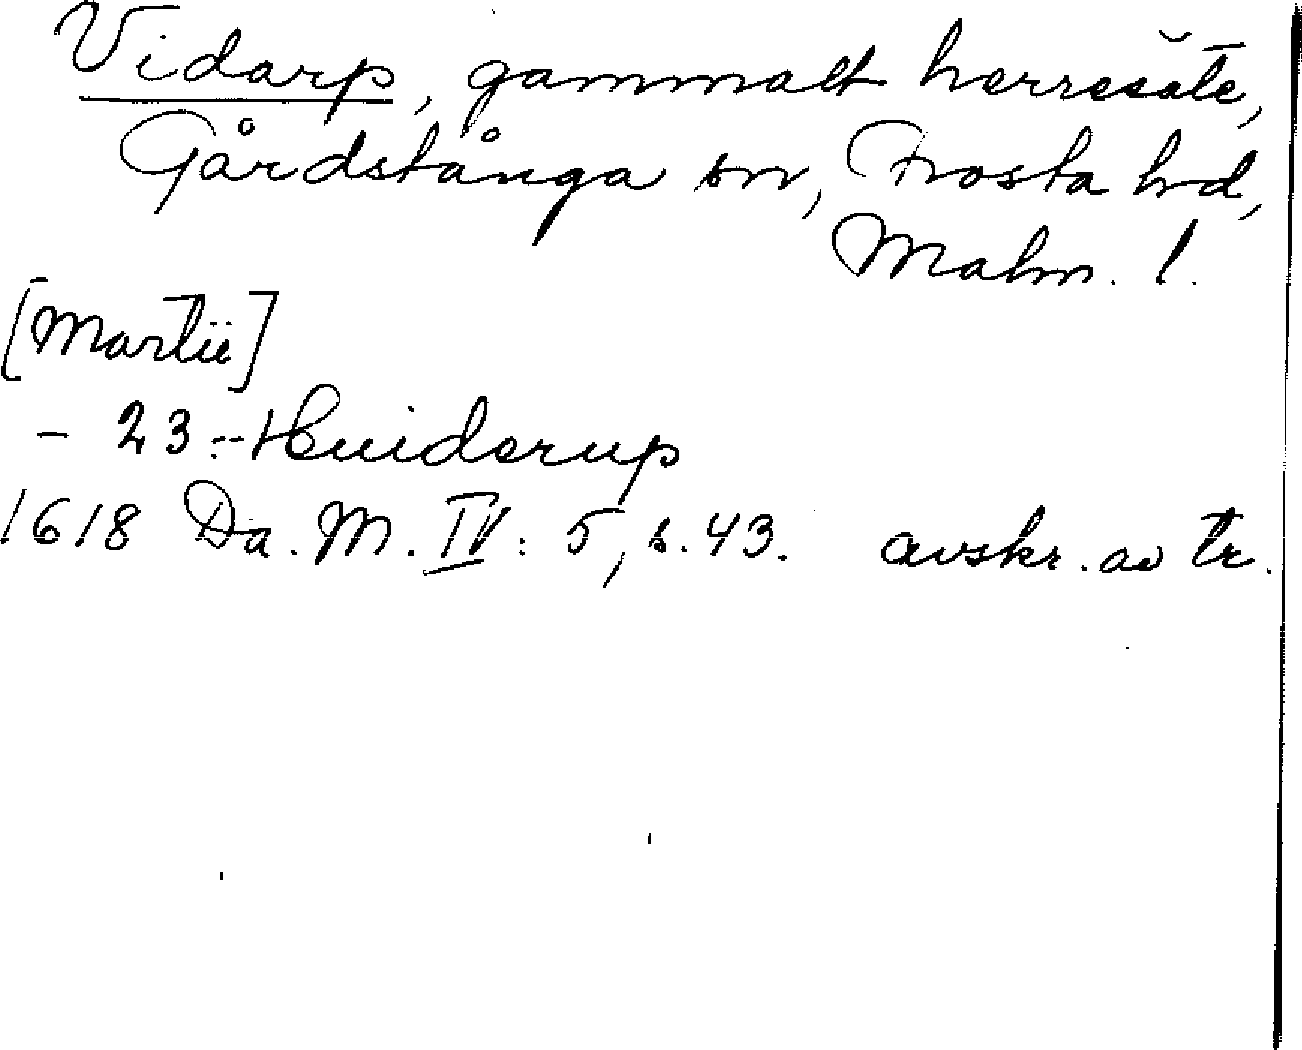 Vidarp, gammalt herresäte,
Gårdstånga sn, Frosta hd,
Malm. l.
[Martii]
- 23 :- Huiderup
1618 Da. M. IV: 5, s. 43. avskr. av tr.